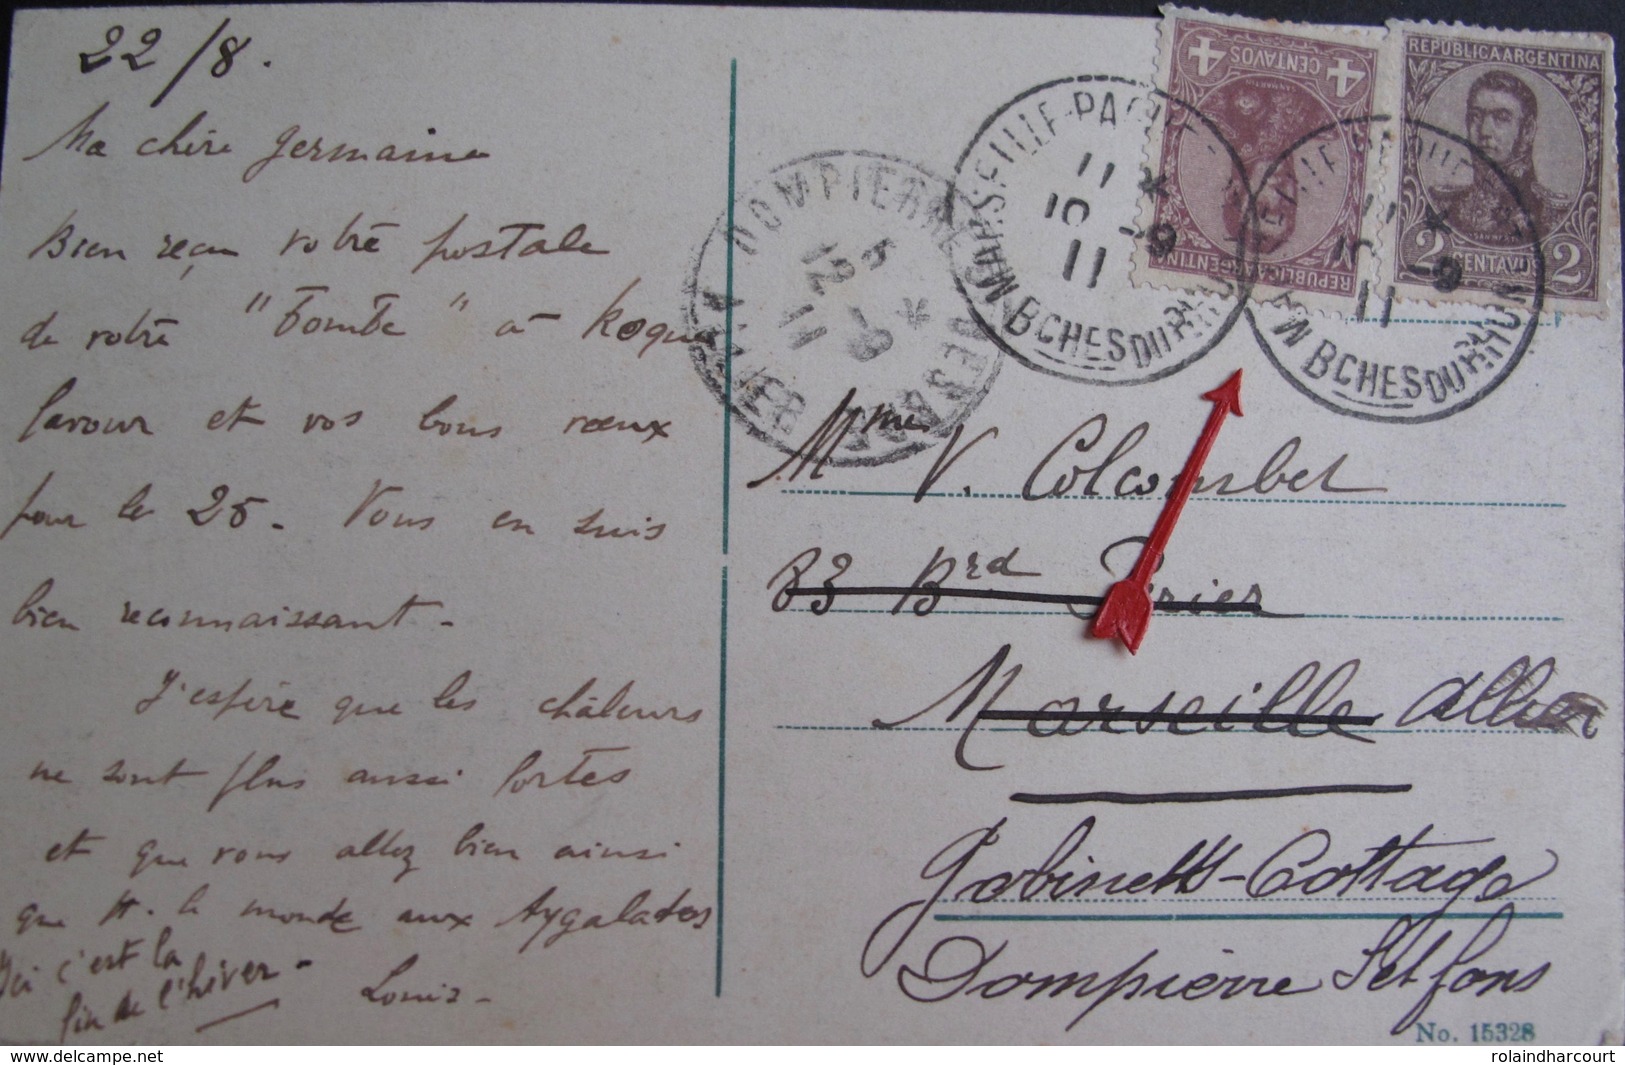 22/8.
Ma chère Germaine
Bien reçu votre postale
de votre "Tombe" à Roque
favour et vos bons vœux
pour le 25. Vous en suis
bien reconnaissant.
J'espère que les châleurs
ne sont plus aussi fortes
et que vous allez bien ainsi
que tt. le monde aux Aygalades
Ici c'est la
fin de l'hiver -
Louis -
4 CENTAVOS 4
REPUBLICA ARGENTINA
REPUBLICA ARGENTINA
2 CENTAVOS 2
MARSEILLE
11 *
10 -9
11
BCHES DU RHONE
11 *
10 -9
11
BCHES DU RHONE
DOMPIERRE
5 *
12 -9
11
ALLIER
Mme V. Colcombet
83 Brd Périer
Marseille Allier
Gobinetts-Cottage
Dompierre Sel fons
No. 15328
www.delcampe.net
rolaindharcourt